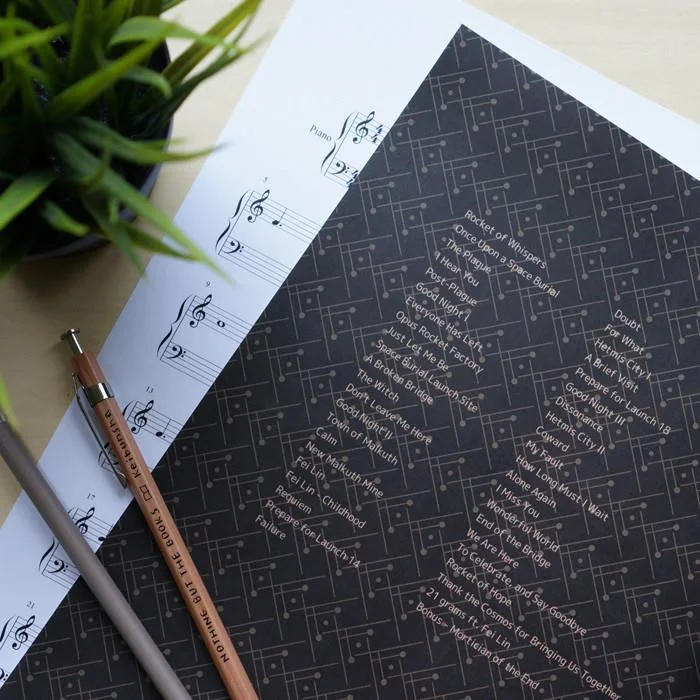 Piano
5
9
13
17
21
Rocket of Whispers
Once Upon a Space Burial
The Plague
I Hear You
Post-Plague
Good Night I
Everyone Has Left
Opus Rocket Factory
Just Let Me Be
Space Burial Launch Site
A Broken Bridge
The Witch
Don't Leave Me Here
Good Night II
Town of Malkuth
Calm
New Malkuth Mine
Fei Lin
Fei Lin - Childhood
Requiem
Prepare for Launch 14
Failure
Doubt
For What
Hetmis City I
A Brief Visit
Prepare for Launch 18
Good Night III
Dissonance
Hetmis City II
Coward
My Fault
How Long Must I Wait
Alone Again
I Miss You
Wonderful World
End of the Bridge
We Are Here
To Celebrate and Say Goodbye
Rocket of Hope
Thank the Cosmos for Bringing Us Together
21 grams ft. Fei Lin
Bonus - Mortician of the End
NOTHING BUT THE BOOKS Keibunsha